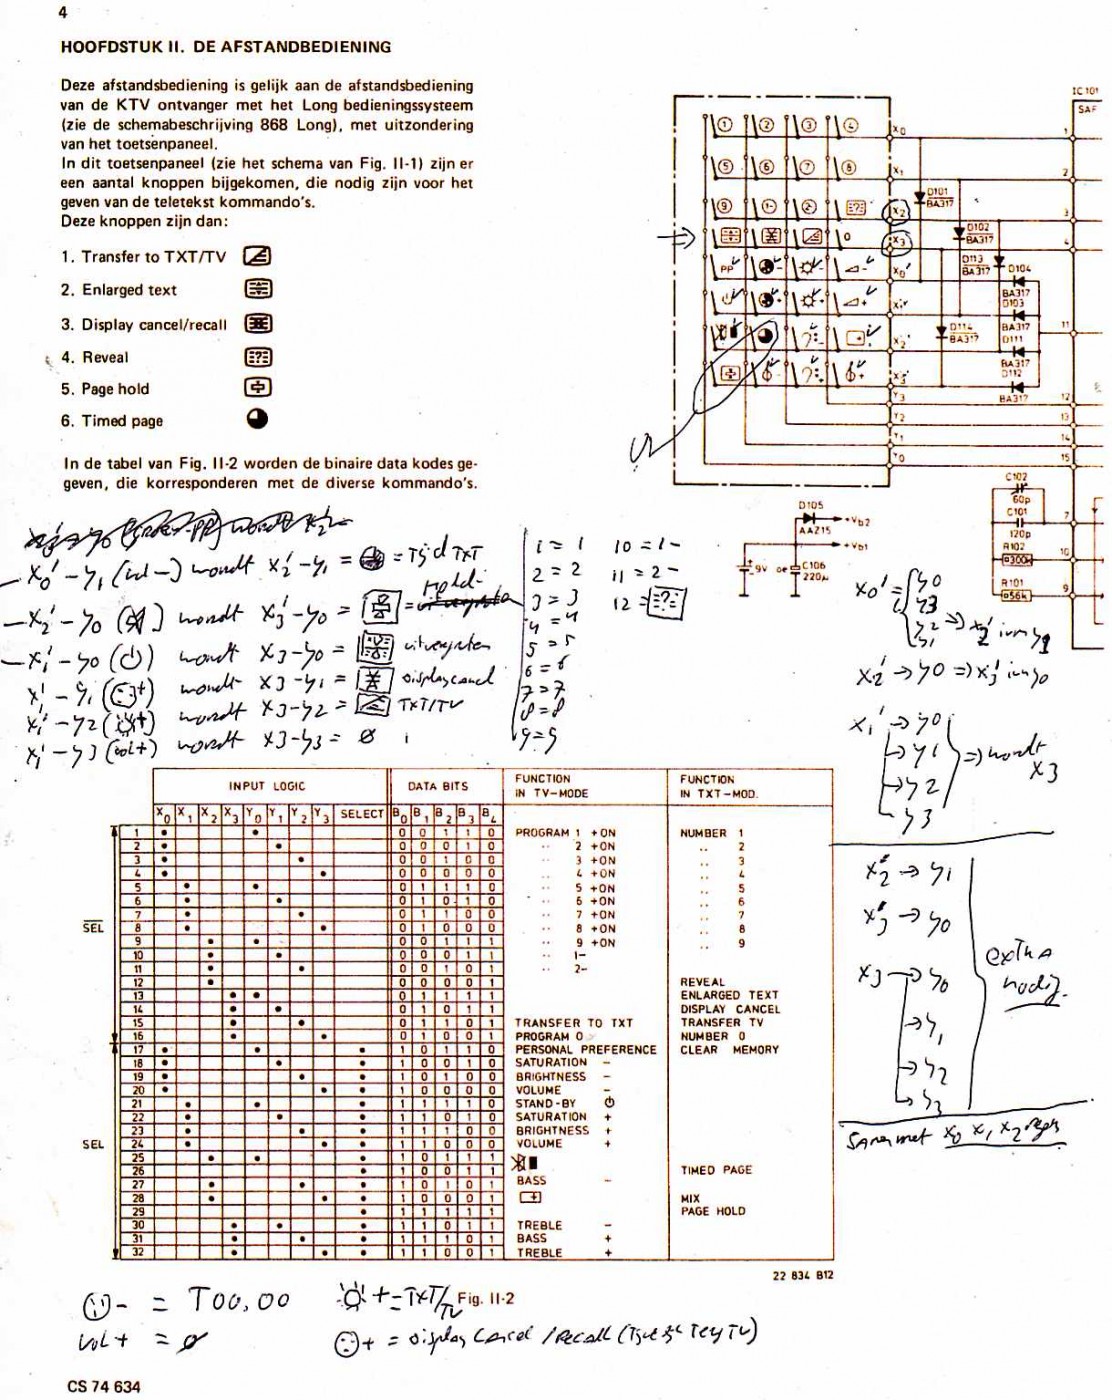 4
HOOFDSTUK II. DE AFSTANDBEDIENING
Deze afstandsbediening is gelijk aan de afstandsbediening
van de KTV ontvanger met het Long bedieningssysteem
(zie de schemabeschrijving 868 Long), met uitzondering
van het toetsenpaneel.
In dit toetsenpaneel (zie het schema van Fig. II-1) zijn er
een aantal knoppen bijgekomen, die nodig zijn voor het
geven van de teletekst kommando's.
Deze knoppen zijn dan:
1. Transfer to TXT/TV
2. Enlarged text
3. Display cancel/recall
4. Reveal
5. Page hold
6. Timed page
In de tabel van Fig. II-2 worden de binaire data kodes ge-
geven, die korresponderen met de diverse kommando's.
IC 101
SAF
1 2 3 4 X0 1
5 6 7 8 X1 2
9 1- 2- ?? X2 3
0 X3 4
PP - - - X0'
+ + + X1'
X2' 11
- + X3'
Y3 12
Y2 13
Y1 14
Y0 15
D101
BA317
D102
BA317
D113
BA317
D104
BA317
D103
BA317
D114
BA317
D111
BA317
D112
BA317
C102
60p
C101
120p
R102
300k
R101
56k
7
10
9
D105
AAZ15
+Vb2
+Vb1
9V
C106
220µ
x0' - y1 (vol -) wordt x2' - y1 = = Tijd TXT
x2' - y0 wordt x3' - y0 = = hold
x1' - y0 wordt x3 - y0 = uitvergroten
x1' - y1 ( +) wordt x3 - y1 = display cancel
x1' - y2 ( +) wordt x3 - y2 = TXT/TV
x1' - y3 (vol+) wordt x3 - y3 = 0
1 = 1 10 = 1-
2 = 2 11 = 2-
3 = 3 12 = ??
4 = 4
5 = 5
6 = 6
7 = 7
8 = 8
9 = 9
x0' = y0
y3
y2
y1 => x2' y1
x2' -> y0 => x3' y0
x1' -> y0
-> y1 => wordt
-> y2 x3
-> y3
x2' -> y1
x3' -> y0
x3 -> y0
-> y1
-> y2
-> y3
extra
nodig.
Samen met x0 x1 x2 regels
INPUT LOGIC DATA BITS FUNCTION IN TV-MODE FUNCTION IN TXT-MOD.
X0 X1 X2 X3 Y0 Y1 Y2 Y3 SELECT B0 B1 B2 B3 B4
SEL
1 • • 0 0 1 1 0 PROGRAM 1 +ON NUMBER 1
2 • • 0 0 0 1 0 .. 2 +ON .. 2
3 • • 0 0 1 0 0 .. 3 +ON .. 3
4 • • 0 0 0 0 0 .. 4 +ON .. 4
5 • • 0 1 1 1 0 .. 5 +ON .. 5
6 • • 0 1 0 1 0 .. 6 +ON .. 6
7 • • 0 1 1 0 0 .. 7 +ON .. 7
8 • • 0 1 0 0 0 .. 8 +ON .. 8
9 • • 0 0 1 1 1 .. 9 +ON .. 9
10 • • 0 0 0 1 1 .. 1-
11 • • 0 0 1 0 1 .. 2-
12 • 0 0 0 0 1 REVEAL
13 • • 0 1 1 1 1 ENLARGED TEXT
14 • • 0 1 0 1 1 DISPLAY CANCEL
15 • • 0 1 1 0 1 TRANSFER TO TXT TRANSFER TV
16 • • 0 1 0 0 1 PROGRAM 0 NUMBER 0
SEL
17 • • • 1 0 1 1 0 PERSONAL PREFERENCE CLEAR MEMORY
18 • • • 1 0 0 1 0 SATURATION -
19 • • • 1 0 1 0 0 BRIGHTNESS -
20 • • • 1 0 0 0 0 VOLUME -
21 • • • 1 1 1 1 0 STAND-BY
22 • • • 1 1 0 1 0 SATURATION +
23 • • • 1 1 1 0 0 BRIGHTNESS +
24 • • • 1 1 0 0 0 VOLUME +
25 • • • 1 0 1 1 1
26 • 1 0 0 1 1 TIMED PAGE
27 • • • 1 0 1 0 1 BASS -
28 • • • 1 0 0 0 1 MIX
29 • 1 1 1 1 1 PAGE HOLD
30 • • • 1 1 0 1 1 TREBLE -
31 • • • 1 1 1 0 1 BASS +
32 • • • 1 1 0 0 1 TREBLE +
22 834 B12
- = T00,00 + = TXT/TV Fig. II-2
vol + = 0 + = display cancel / Recall
CS 74 634